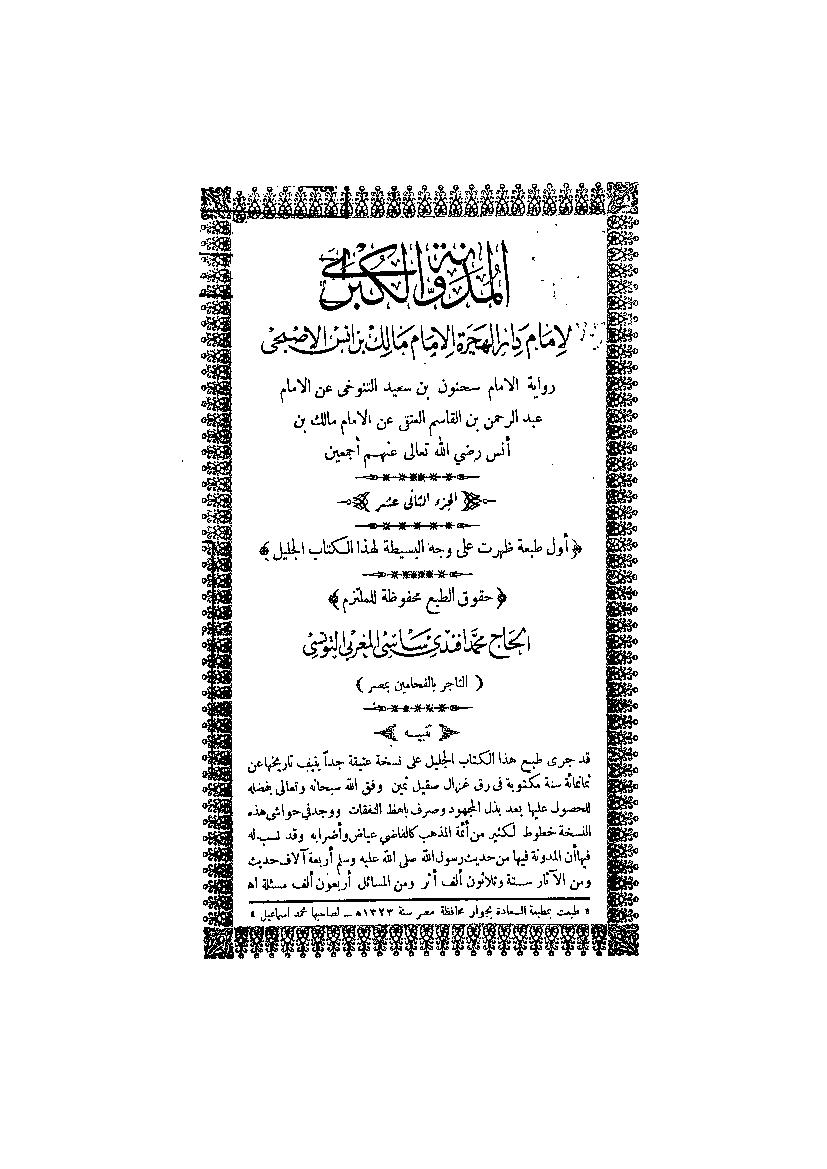 المدونة الكبرى
لإمام دار الهجرة الإمام مالك بن أنس الأصبحي
رواية الامام سحنون بن سعيد التنوخى عن الامام
عبد الرحمن بن القاسم العتقى عن الامام مالك بن
أنس رضي الله تعالى عنهم أجمعين
الجزء الثانى عشر
﴿ أول طبعة ظهرت على وجه البسيطة لهذا الكتاب الجليل ﴾
﴿ حقوق الطبع محفوظة للملتزم ﴾
الحاج محمد افندى ساسى المغربى التونسى
( التاجر بالفحامين بمصر )
تنبيه
قد جرى طبع هذا الكتاب الجليل على نسخة عتيقة جداً ينيف تاريخها عن
ثمانمائة سنة مكتوبة فى رق غزال صقيل ثمين وفق الله سبحانه وتعالى بفضله
للحصول عليها بعد بذل المجهود وصرف باهظ النفقات ووجد في حواشى هذه
النسخة خطوط لكثير من أئمة المذهب كالقاضي عياض وأضرابه وقد نسب له
فيها أن المدونة فيها من حديث رسول الله صلى الله عليه وسلم أربعة آلاف حديث
ومن الآثار ستة وثلاثون ألف أثر ومن المسائل أربعون ألف مسئلة اه
« طبعت بمطبعة السعادة بجوار محافظة مصر سنة ١٣٢٣ه‍ ـ لصاحبها محمد اسماعيل »